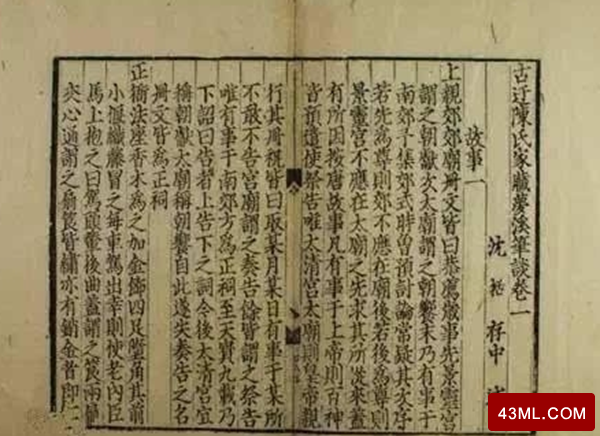 古迂陳氏家藏夢溪筆談卷一
沈括存中
故事一
上親郊郊廟冊文皆曰恭薦歲事先景靈宮
謂之朝獻次太廟謂之朝饗末乃有事于
南郊予集郊式時曾預討論常疑其次序
若先爲尊則郊不應在廟後若後爲尊則
景靈宮不應在太廟之先求其所從來蓋
有所因按唐故事凡有事于上帝則百神
皆預遣使祭告唯太清宮太廟則皇帝親
行其冊祝皆曰取某月某日有事于某所
不敢不告宮廟謂之奏告餘皆謂之祭告
唯有事于南郊方爲正祠至天寶九載乃
下詔曰告者上告下之詞今後太清宮宜
稱朝獻太廟稱朝饗自此遂失奏告之名
冊文皆爲正祠
正衙法座香木爲之加金飾四足墮角其前
小偃織藤冒之每車駕出幸則使老內臣
馬上抱之曰駕頭輦後曲蓋謂之筤兩扇
夾心通謂之扇筤皆繡亦有銷金者即
43ML.COM